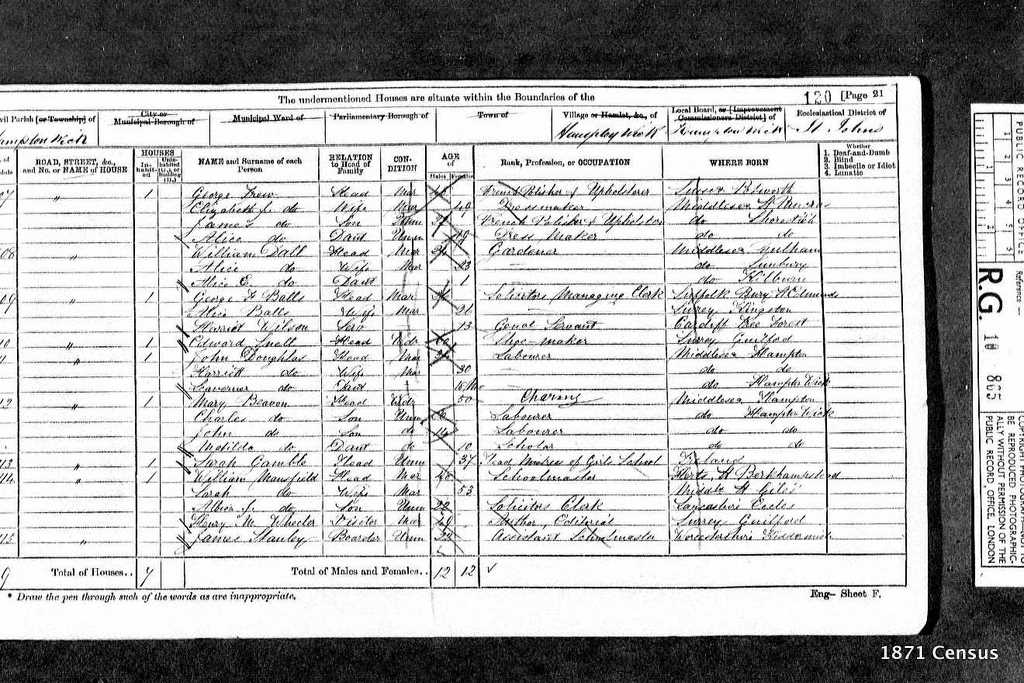 The undermentioned Houses are situate within the Boundaries of the
120 [Page 21
Civil Parish [or Township] of
City or Municipal Borough of
Municipal Ward of
Parliamentary Borough of
Town of
Village or Hamlet, &c., of
Local Board, or [Improvement Commissioners District] of
Ecclesiastical District of
Hampton Wick
Hampton Wick
Hampton Wick
St Johns
ROAD, STREET, &c., and No. or NAME of HOUSE
HOUSES
Inhabited
Uninhabited (U.), or Building (B.)
NAME and Surname of each Person
RELATION to Head of Family
CONDITION
AGE of
Males
Females
Rank, Profession, or OCCUPATION
WHERE BORN
Whether
1. Deaf-and-Dumb
2. Blind
3. Imbecile or Idiot
4. Lunatic
07 " 1 George Head Mar French Polisher & Upholsterer Sussex
Elizabeth J. do Wife Mar 49 Dressmaker Middlesex
James do Son French Polisher & Upholster do Shoreditch
Alice do Daur Unm Dress Maker do do
08 " William Dall Head Mar Gardener Middlesex
Alice do Wife Mar 23 do Sunbury
Alice E. do Daur 1 do Kilburn
09 " 1 George F Balls Head Mar Solicitors Managing Clerk Suffolk Bury St Edmunds
Alice Balls Wife Mar 21 Surrey Kingston
Harriet Wilson Serv 13 Genal Servant Cardiff
10 " 1 Edward Head Shoe maker Surrey Guilford
" 1 John Doughlas Head Mar Labourer Middlesex Hampton
do Wife Mar 30 do do
do Daur 10 Mo do Hampton Wick
12 " 1 Mary Beavon Head Wid 50 Charing Middlesex Hampton
Charles do Son Unm Labourer do Hampton Wick
John do Son do Labourer do do
Matilda do Daur do 10 Scholar do do
13 " 1 Sarah Gamble Head Unm 37 Head Mistress of Girls School Ireland
14 " 1 William Mansfield Head Mar Schoolmaster Herts Gt Berkhampstead
Sarah do Wife Mar 53 Middx St Giles
do Son Unm 22 Solicitors Clerk Lancashire Eccles
Henry M. Wheeler Visitor Mar Author, Editorial Surrey Guilford
" James Stanley Boarder Unm Assistant Schoolmaster Worcestershire
9 Total of Houses.. 7 Total of Males and Females.. 12 12
* Draw the pen through such of the words as are inappropriate.
Eng— Sheet F.
PUBLIC RECORD OFFICE
Reference
R.G. 10 865
COPYRIGHT PHOTOGRAPH
BE REPRODUCED PHOTOGRAPHIC-
ALLY WITHOUT PERMISSION OF THE
PUBLIC RECORD OFFICE, LONDON
1871 Census